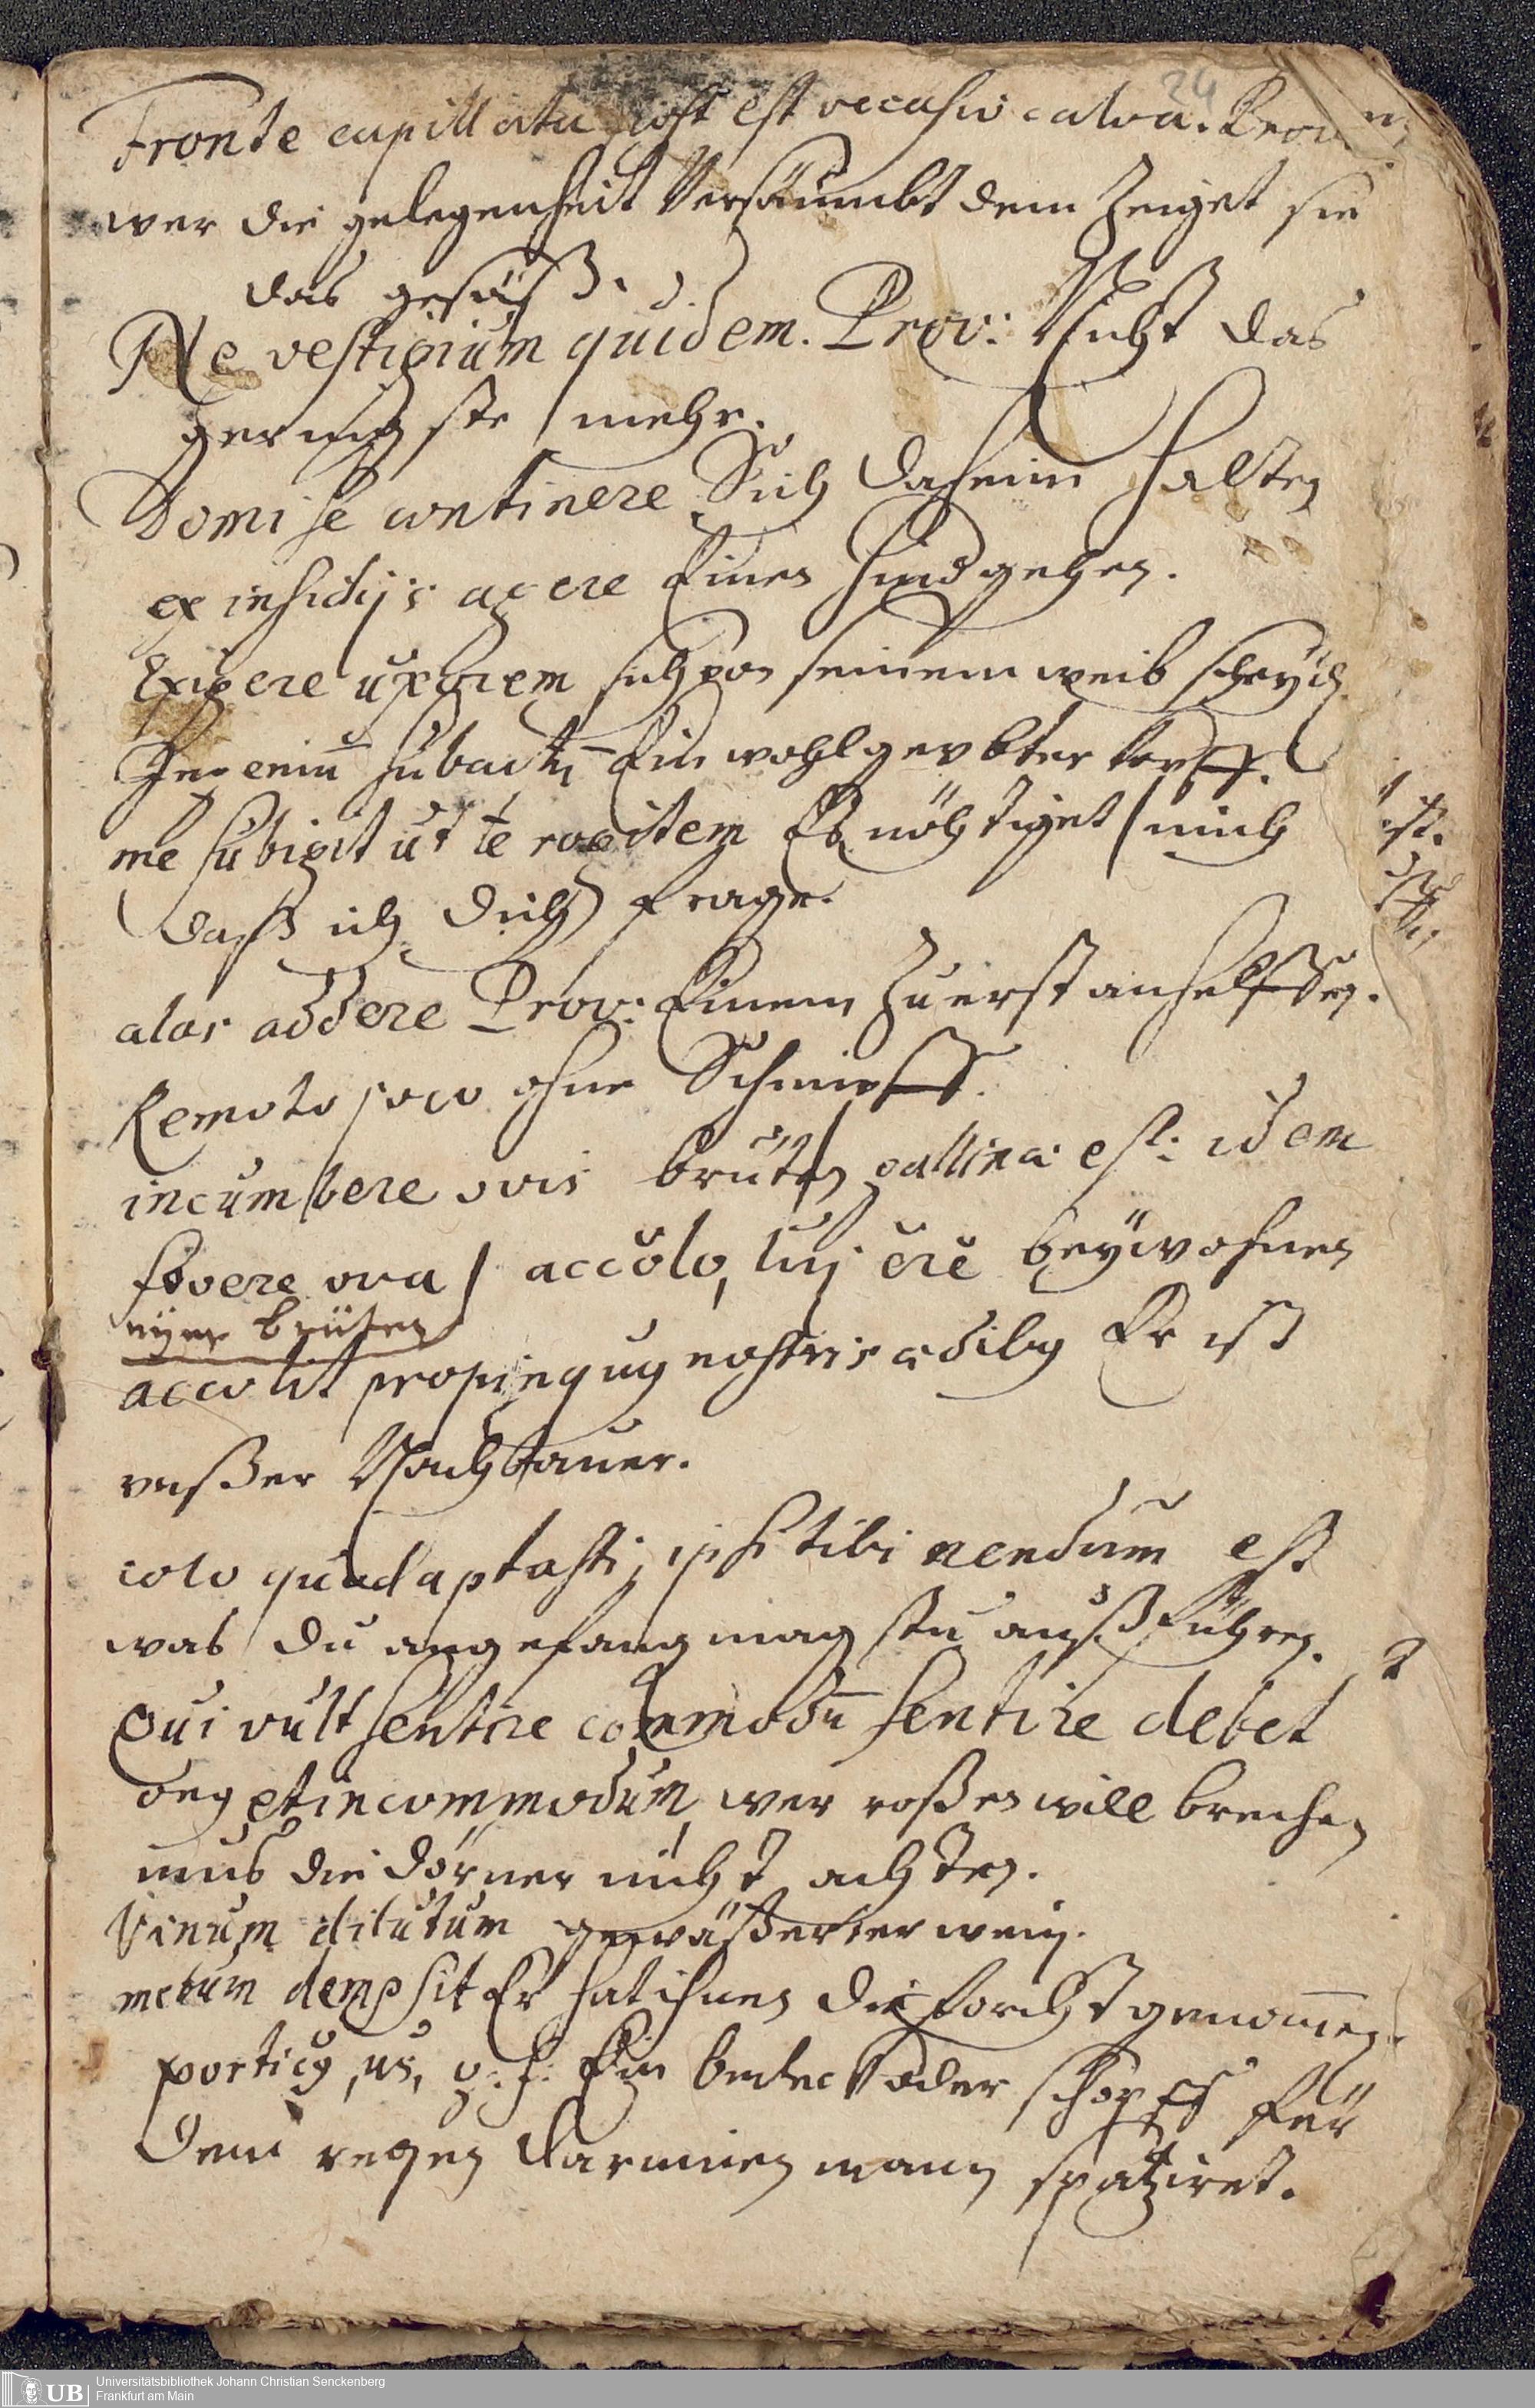 24
Fronte capillata post est occasio calva. Prov
wer die gelegenheit Versäumbt dem Zeiget sie
das gesäß.
Ne vestigium quidem. Prov: Nicht das
geringste mehr.
Domi se continere Sich daheim halten
ex insidijs agere Einen hindgehen.
Exigere uxorem sich von seinem weib scheyd
Ingeniū subactū Ein wohlgeübter kopff.
me subigit ut te rogitem Es nöhtiget mich
daß ich dich frage.
alas addere Prov: Einem Zuerst anhelffen.
Remoto joco ohne Schimpff.
incumbere ovis brüten gallinæ est: idem
fovere ova accolo, lui ere beywohnen
eyer brüten
accolit propinquus nostris ædibus Er ist
unßer Nachbauer.
colo quod aptasti, ipsi tibi nendum est
was du angefang magstu außführen.
Qui vult sentire commodū sentire debet
onus et incommodum wer roßen will brechen
mus die dörner nicht achten.
Vinum dilutum gewäßerter wein.
metum dempsit Er hat ihnen die forcht genom̄en.
porticus, us, g. f. Ein bedeckt oder schopff für
dem regen darinnen mann spatziret.
ist.
Universitätsbibliothek Johann Christian Senckenberg
Frankfurt am Main
UB